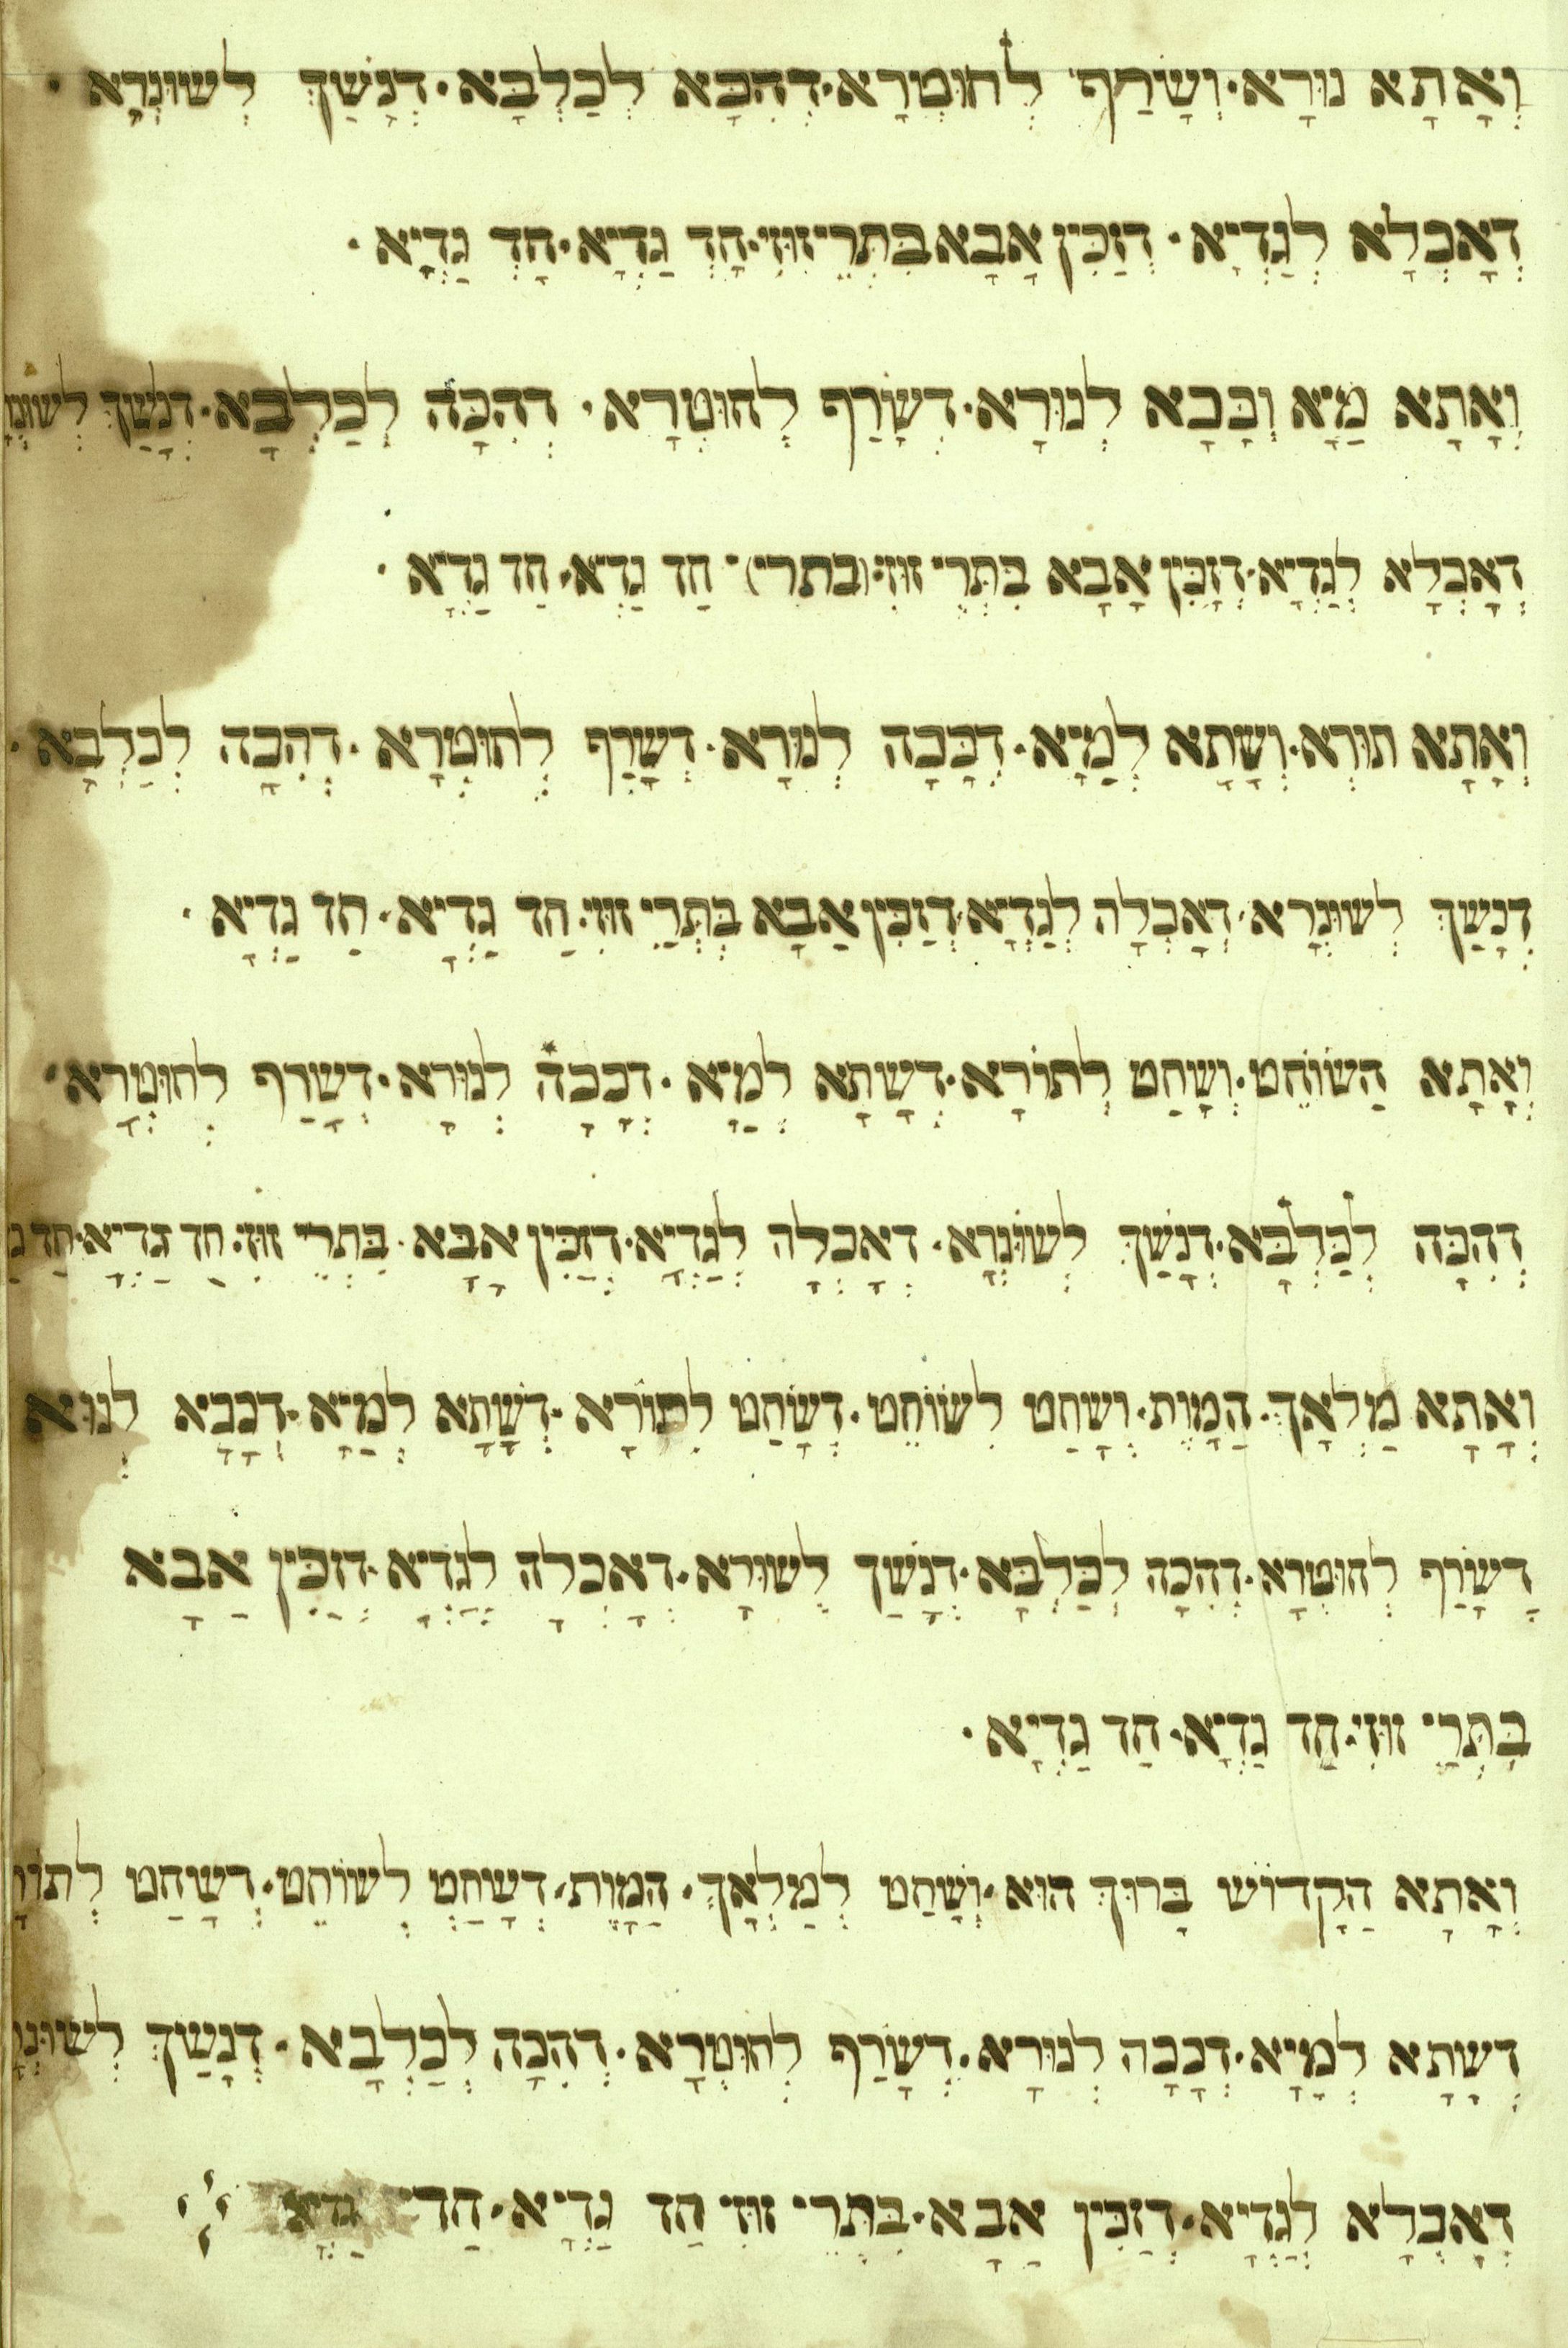 וְאָתָא נוּרָא. וְשָׂרַף לְחוּטְרָא. דְהִכָּא לְכַלְבָּא. דְנָשַׁךְ לְשׁוּנְרָא.
דְאָכְלָא לְגַדְיָא. דְזַכִּין אָבָא בִּתְרֵי זוּזֵי. חַד גַדְיָא. חַד גַדְיָא.
וְאָתָא מַיָא וְכָבָא לְנוּרָא. דְשָׂרַף לְחוּטְרָא. דְהִכָּה לְכַלְבָּא. דְנָשַׁךְ
דְאָכְלָא לְגַדְיָא. דְזַכִּין אָבָא בִּתְרֵי זוּזִי. (בתרי) חַד גַדְיָא. חַד גַדְיָא.
וְאָתָא תוּרְא. וְשָׁתָא לְמַיָא. דְכָבָה לְנוּרָא. דְשָׂרַף לְחוּטְרָא. דְהִכָּה לְכַלְבָּא.
דְנָשַׁךְ לְשׁוּנְרָא. דְאָכְלָה לְגַדְיָא. דְזַכִּין אַבָא בִּתְרֵי זוּזִי. חַד גַדְיָא. חַד גַדְיָא.
וְאָתָא הַשׁוֹחֵט. וְשָׁחַט לְתוֹרָא. דְשָׁתָא לְמַיָא. דְכָבָה לְנוּרָא. דְשָׂרַף לְחוּטְרָא.
דְהִכָּה לְכַלְבָּא. דְנָשַׁךְ לְשׁוּנְרָא. דְאָכְלָה לְגַדְיָא. דְזַכִּין אַבָּא. בִּתְרֵי זוּזִי. חד גַדְיָא. חַד
וְאָתָא מַלְאָךְ. הַמָוֶת. וְשָׁחַט לְשׁוֹחֵט. דְשָׁחַט לְתוֹרָא. דְשָׁתָא לְמַיָא. דְכָבָא
דְשָׂרַף לְחוּטְרָא. דְהִכָּה לְכַלְבָּא. דְנָשַׁךְ לְשׁוּרָא. דְאָכְלָה לְגַדְיָא. דְזַכִּין אַבָא
בִּתְרֵי זוּזִי. חַד גַדְיָא. חַד גַדְיָא.
וְאָתָא הַקָדוֹשׁ בָּרוּךְ הוּא. וְשָׁחַט לְמַלְאָךְ. הַמָוֶת. דְשָׁחַט לְשׁוֹחֵט. דְשָׁחַט
דְשָׁתָא לְמַיָא. דְכָבָה לְנוּרָא. דְשָׂרַף לְחוּטְרָא. דְהִכָּה לְכַלְבָא. דְנָשַׁךְ
דְאָכְלָא לְגַדְיָא. דְזַכִּין אַבָא. בִּתְרֵי זוּזִי חַד גַדְיָא. חַד גַדְיָא